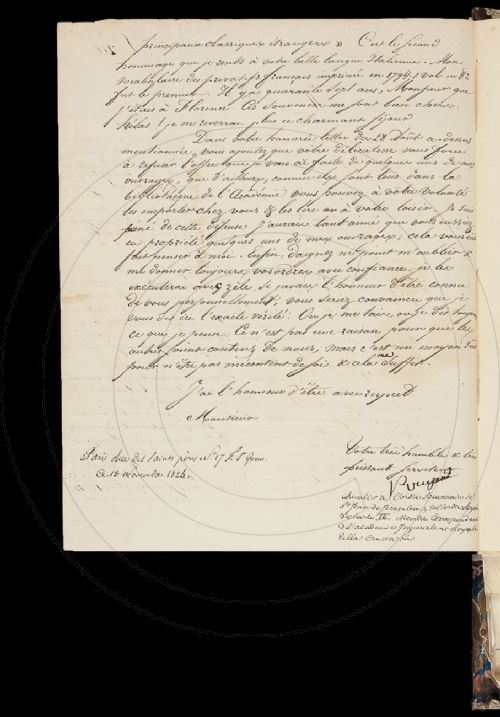 principaux classiques étrangers » C'est le second
hommage que je rends à votre belle langue Italienne. Mon
Vocabulaire des privatifs français imprimé en 1794, 1 vol. in 8º
fut le premier. Il y a quarante sept ans, Monsieur que
j'étais à Florence. Ces souvenirs me sont bien chers.
hélas! je ne reverrai plus ce charmant séjour
Dans votre honorée lettre du 28 Août ci-dessus
mentionnée, vous ajoutez que votre vous force
à refuser l'offre que je vous ai faite de quelques uns de mes
ouvrages, que d'ailleurs, comme ils sont tous dans la
bibliothèque de l'Académie vous pouvez à votre volonté
les emporter chez vous & les lire à votre loisir. Je suis
peiné de cette défense. J'aurais tant aimé que vous eussiez
en propriété quelques uns de mes ouvrages; cela vous eut
fait penser à moi. Enfin, daignez ne point m'oublier &
me donner toujours vos ordres avec confiance, je les
exécuterai avec zèle. Si j'avais l'honneur d'être connu
de vous personnellement, vous seriez convaincu que je
vous dis ici l'exacte vérité. Ou je me tais, ou je dis toujours
ce que je pense. Ce n'est pas une raison pour que les
autres soient contens de nous, mais c'est un moyen
pour n'être pas mécontent de soi & cela me suffit.
J'ai l'honneur d'être avec respect
Monsieur
Votre très humble & très
obéissant serviteur
Paris rue des Saints pères Nº 17 f. S. Germ.
Ce 12 novembre 1824.
Pougens
Chevalier de l'ordre Souverain de
St Jean de Jerusalem, de l'ordre
Membre Correspondant
de l'académie Impériale & Royale
della Crusca &c